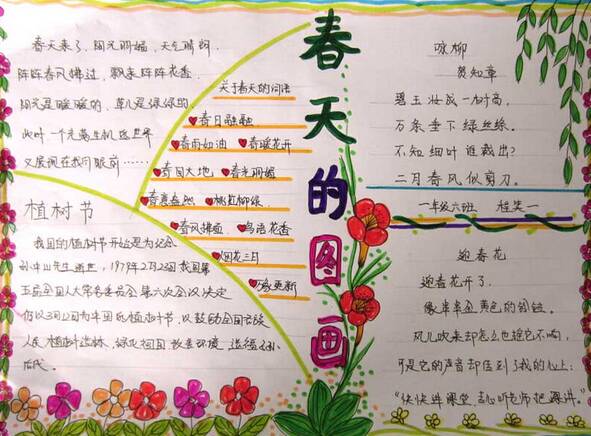 春天的图画
春天来了,阳光明媚,天气晴朗,
阵阵春风拂过,飘来阵阵花香,
阳光是暖暖的,草儿是绿绿的,
又展现在我们眼前……
关于春天的词语
春日融融
春雨如油 春暖花开
春回大地 春光明媚
春意盎然 桃红柳绿
春风拂面 鸟语花香
烟花三月
植树节
我国的植树节开始是为纪念
孙中山先生逝世,1979年2月23日我国第
五届全国人大常务委员会第六次会议决定
仍以3月12日为中国的植树节,以鼓励全国各族
人民植树造林,绿化祖国,改善环境,造福子孙
后代。
咏柳
贺知章
碧玉妆成一树高,
万条垂下绿丝绦。
不知细叶谁裁出?
二月春风似剪刀。
一年级六班 程奕一
迎春花
迎春花开了,
像串串金黄色的铃铛。
风儿吹来却怎么也摇它不响,
可是它的声音却传到了我的心上:
“快快进课堂,去听老师把课讲。”